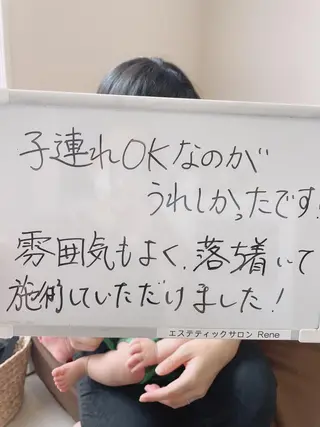 子連れOKなのが
うれしかったです!
雰囲気もよく、落ち着いて
施術していただけました!
エステティックサロン Rene